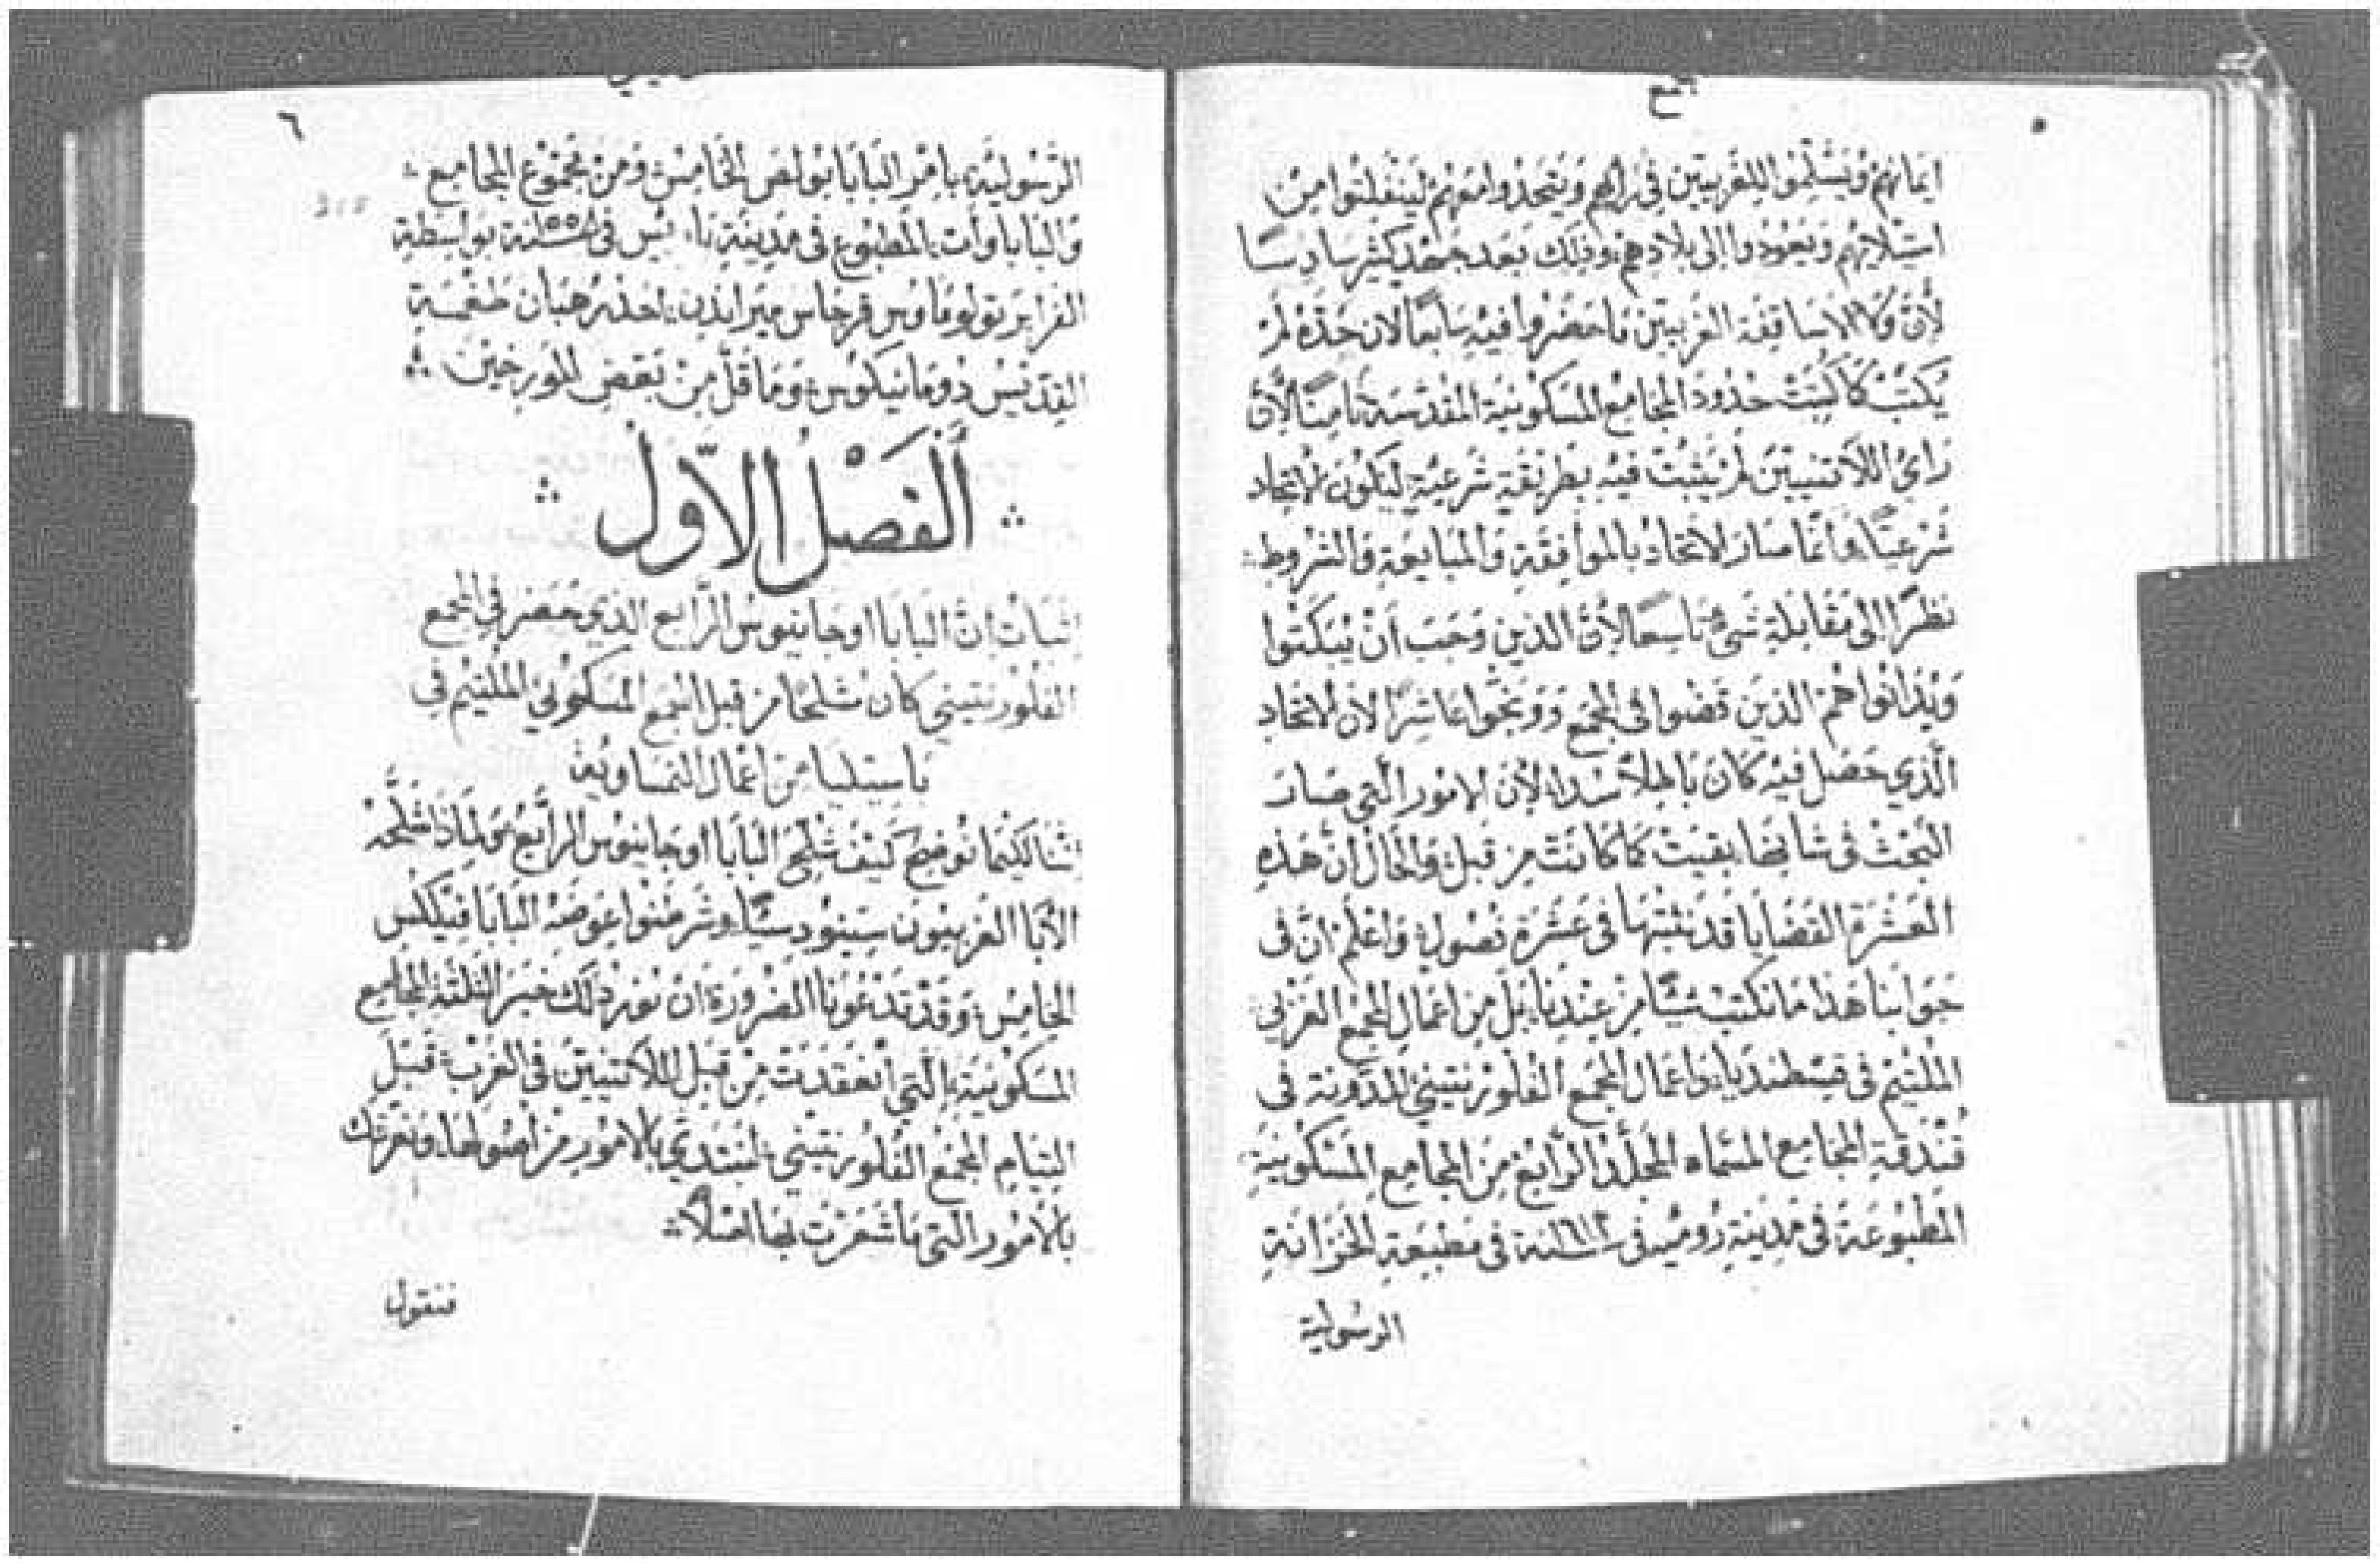 ٥
ايمانهم ويسلموا للغربيين في رايهم ويتحدوا معهم لينفلتوا من
استيلايهم ويعودوا الى بلادهم وذلك بعد جحد كثير سادسا
لأن وكلا الاساقفة الغربيين ما حضروا فيه سابعا لان حده لم
يكتب كما كتبت حدود المجامع المسكونية المقدسة ثامنا لأن
راي اللاتينيين لم يثبت فيه بطريقة شرعية ليكون الاتحاد
شرعيا وانما صار الاتحاد بالموافقة والمبايعة والشروط
نظرا الى مقابلة شي تاسعا لأن الذين وجب أن يبكتوا
ويدانوا هم الذين قضوا في المجمع ووبخوا عاشرا لان الاتحاد
الذي حصل فيه كان باطلا لأن الامور التي صار
البحث في شانها بقيت كما كانت من قبل والحال ان هذه
العشرة القضايا قد نثبتها في عشرة فصول واعلم ان في
جوابنا هذا ما نكتب شيا من عندنا بل من اعمال المجمع الغربي
الملتيم في قسطنديا واعمال المجمع الفلورنتيني المدونة في
فندقة المجامع المسماه المجلد الرابع من المجامع المسكونية
المطبوعة في مدينة رومية في سنة ١٦١٢ في مطبعة الخزانة
الرسولية
٦
الرسولية بامر البابا بولص الخامس ومن مجموع المجامع
والباباوات المطبوع في مدينة في سنة بواسطة
الفرا برتولوماوس احد رهبان طغمة
القديس دومانيكوس وما قل من بعض المورخين
الفصل الاول
اثبات ان البابا اوجانيوس الرابع الذي حضر في المجمع
الفلورنتيني كان مشلحا من قبل المجمع المسكوني الملتيم في
باسيليا من اعمال النمساوية
اننا لكيما نوضح كيف شلح البابا اوجانيوس الرابع ولماذا شلحه
الابا الغربيون سينوديسيا وشرطنوا عوضه البابا فيلكس
الخامس وقد تدعونا الضرورة ان نورد لك خبر الثلثة المجامع
المسكونية التي انعقدت من قبل اللاتينيين في الغرب قبل
التيام المجمع الفلورنتيني لنبتدي بالامور من اصولها ونعرفك
بالامور التي ما شعرت بها اصلا
فنقول